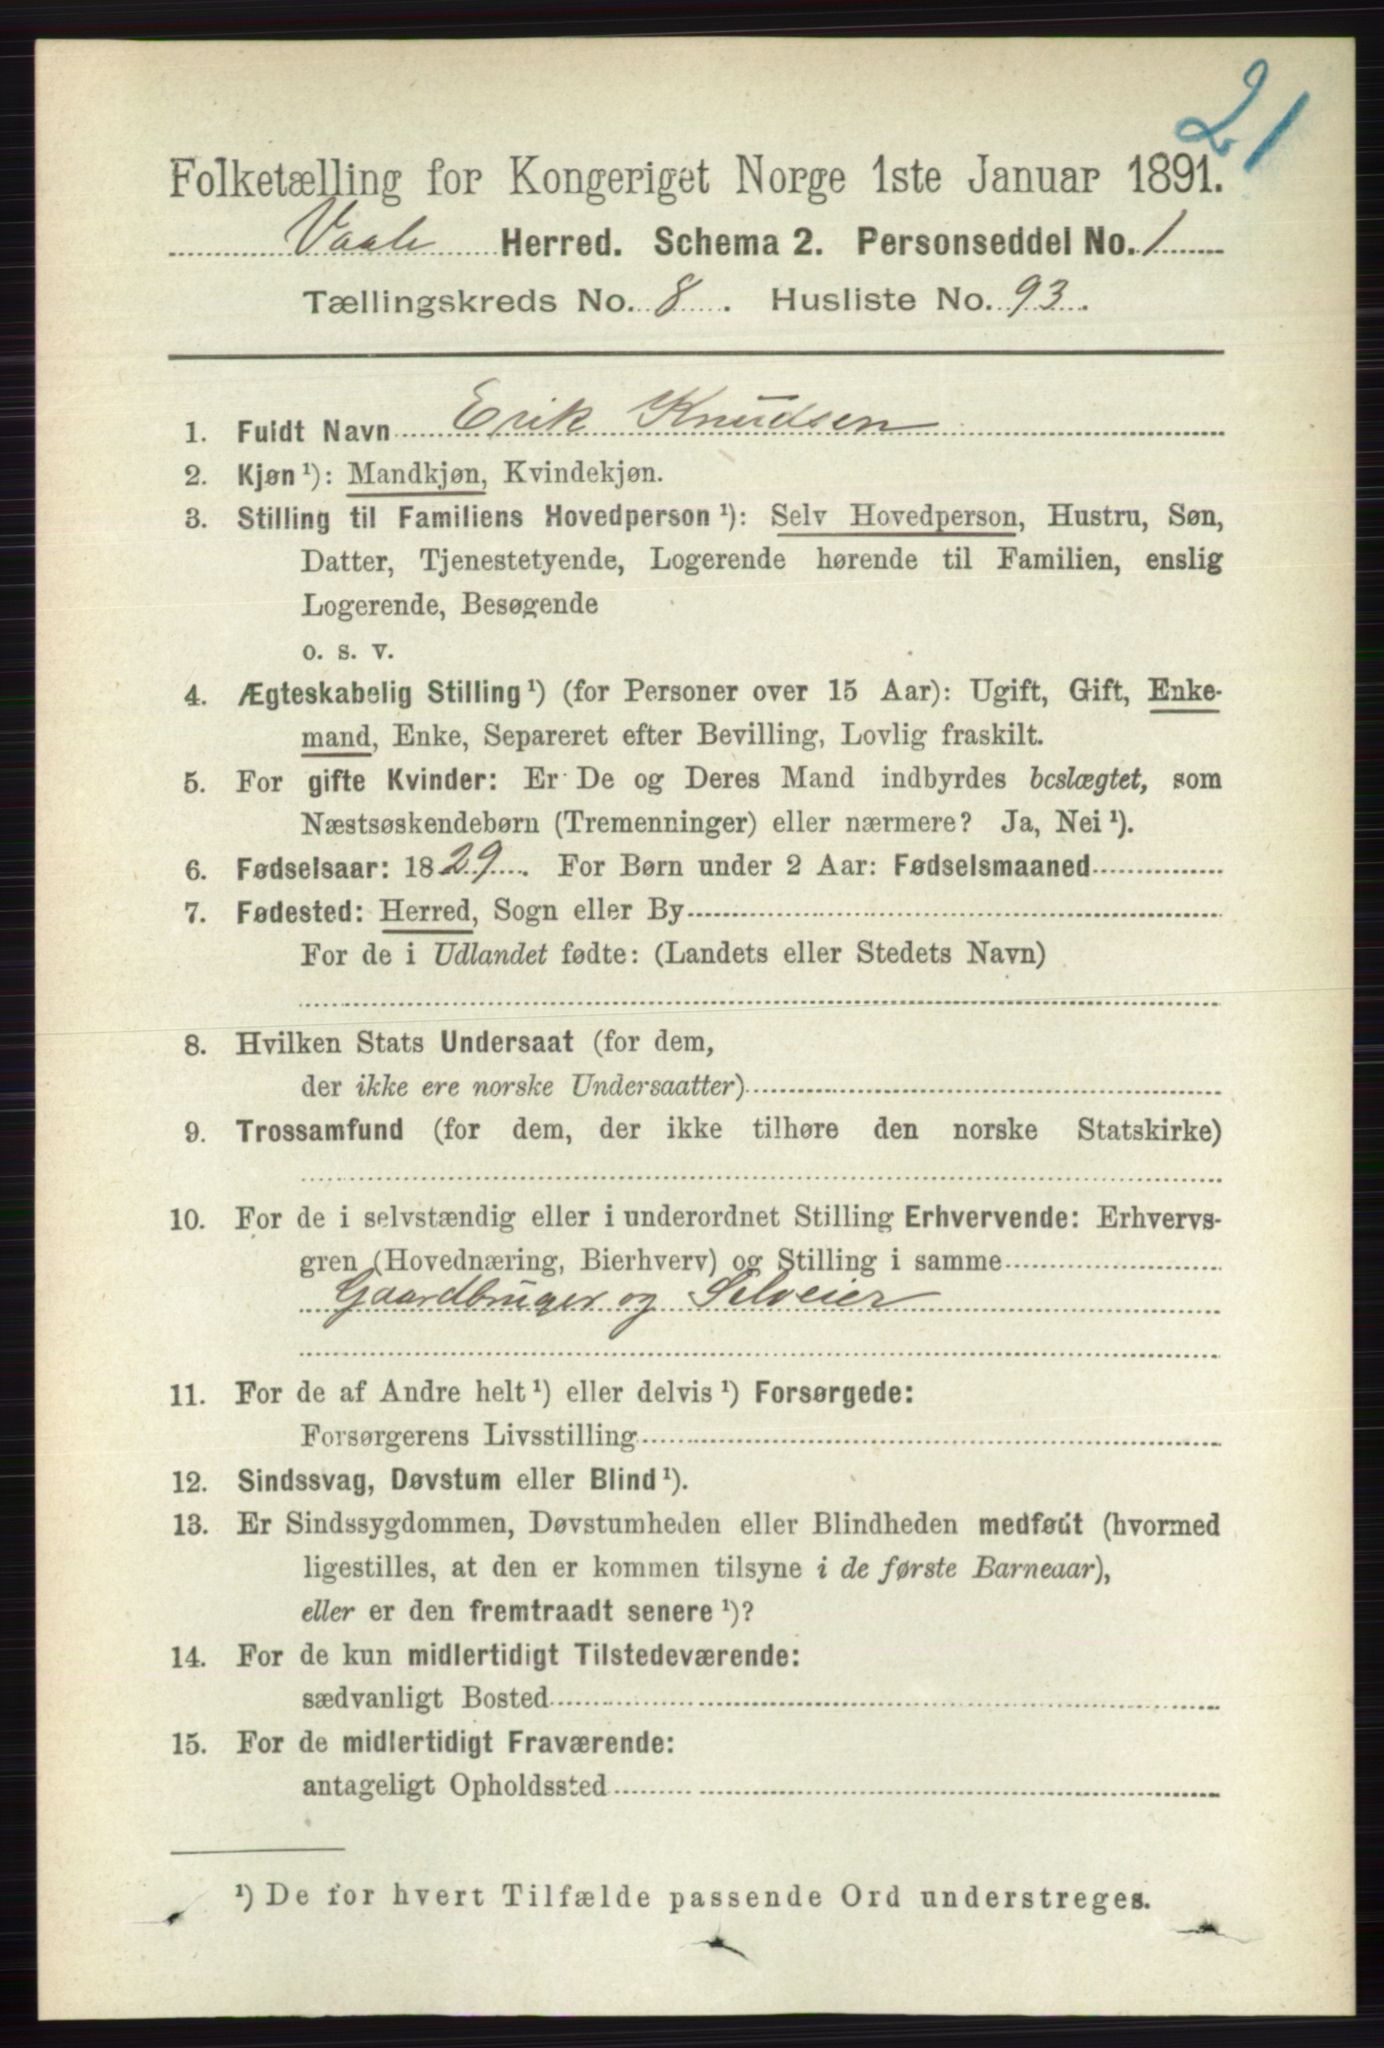 21
Folketælling for Kongeriget Norge 1ste Januar 1891.
Vaale Herred. Schema 2. Personseddel No. 1
Tællingskreds No. 8. Husliste No. 93.
1. Fuldt Navn Erik Knudsen
2. Kjøn ¹): Mandkjøn, Kvindekjøn.
3. Stilling til Familiens Hovedperson ¹): Selv Hovedperson, Hustru, Søn,
Datter, Tjenestetyende, Logerende hørende til Familien, enslig
Logerende, Besøgende
o. s. v.
4. Ægteskabelig Stilling ¹) (for Personer over 15 Aar): Ugift, Gift, Enke-
mand, Enke, Separeret efter Bevilling, Lovlig fraskilt.
5. For gifte Kvinder: Er De og Deres Mand indbyrdes beslægtet, som
Næstsøskendebørn (Tremenninger) eller nærmere? Ja, Nei ¹).
6. Fødselsaar: 1829. For Børn under 2 Aar: Fødselsmaaned
7. Fødested: Herred, Sogn eller By
For de i Udlandet fødte: (Landets eller Stedets Navn)
8. Hvilken Stats Undersaat (for dem,
der ikke ere norske Undersaatter)
9. Trossamfund (for dem, der ikke tilhøre den norske Statskirke)
10. For de i selvstændig eller i underordnet Stilling Erhvervende: Erhvervs-
gren (Hovednæring, Bierhverv) og Stilling i samme
Gaardbruger og Selveier
11. For de af Andre helt ¹) eller delvis ¹) Forsørgede:
Forsørgerens Livsstilling
12. Sindssvag, Døvstum eller Blind ¹).
13. Er Sindssygdommen, Døvstumheden eller Blindheden medfødt (hvormed
ligestilles, at den er kommen tilsyne i de første Barneaar),
eller er den fremtraadt senere ¹)?
14. For de kun midlertidigt Tilstedeværende:
sædvanligt Bosted
15. For de midlertidigt Fraværende:
antageligt Opholdssted
¹) De for hvert Tilfælde passende Ord understreges.